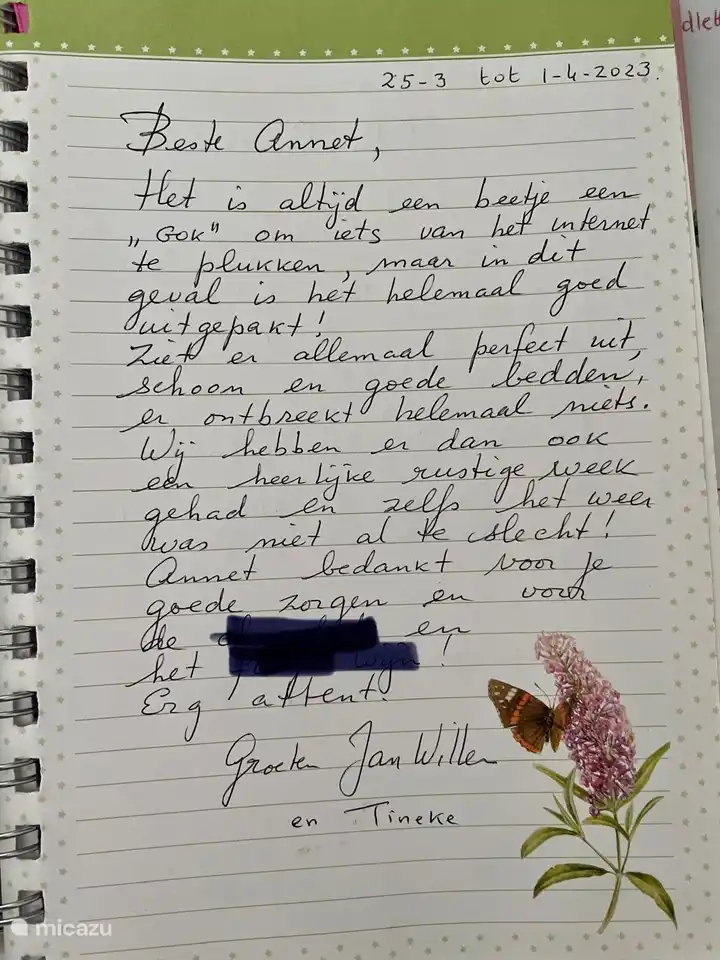 dlet
25-3 tot 1-4-2023.
Beste Annet,
Het is altijd een beetje een
„GOK" om iets van het internet
te plukken, maar in dit
geval is het helemaal goed
uitgepakt!
Ziet er allemaal perfect uit,
schoon en goede bedden,
er ontbreekt helemaal niets.
Wij hebben er dan ook
een heerlijke rustige week
gehad en zelfs het weer
was niet al te slecht!
Annet bedankt voor je
goede zorgen en voor
de en
het wijn!
Erg attent.
Groeten Jan Willem
en Tineke
micazu